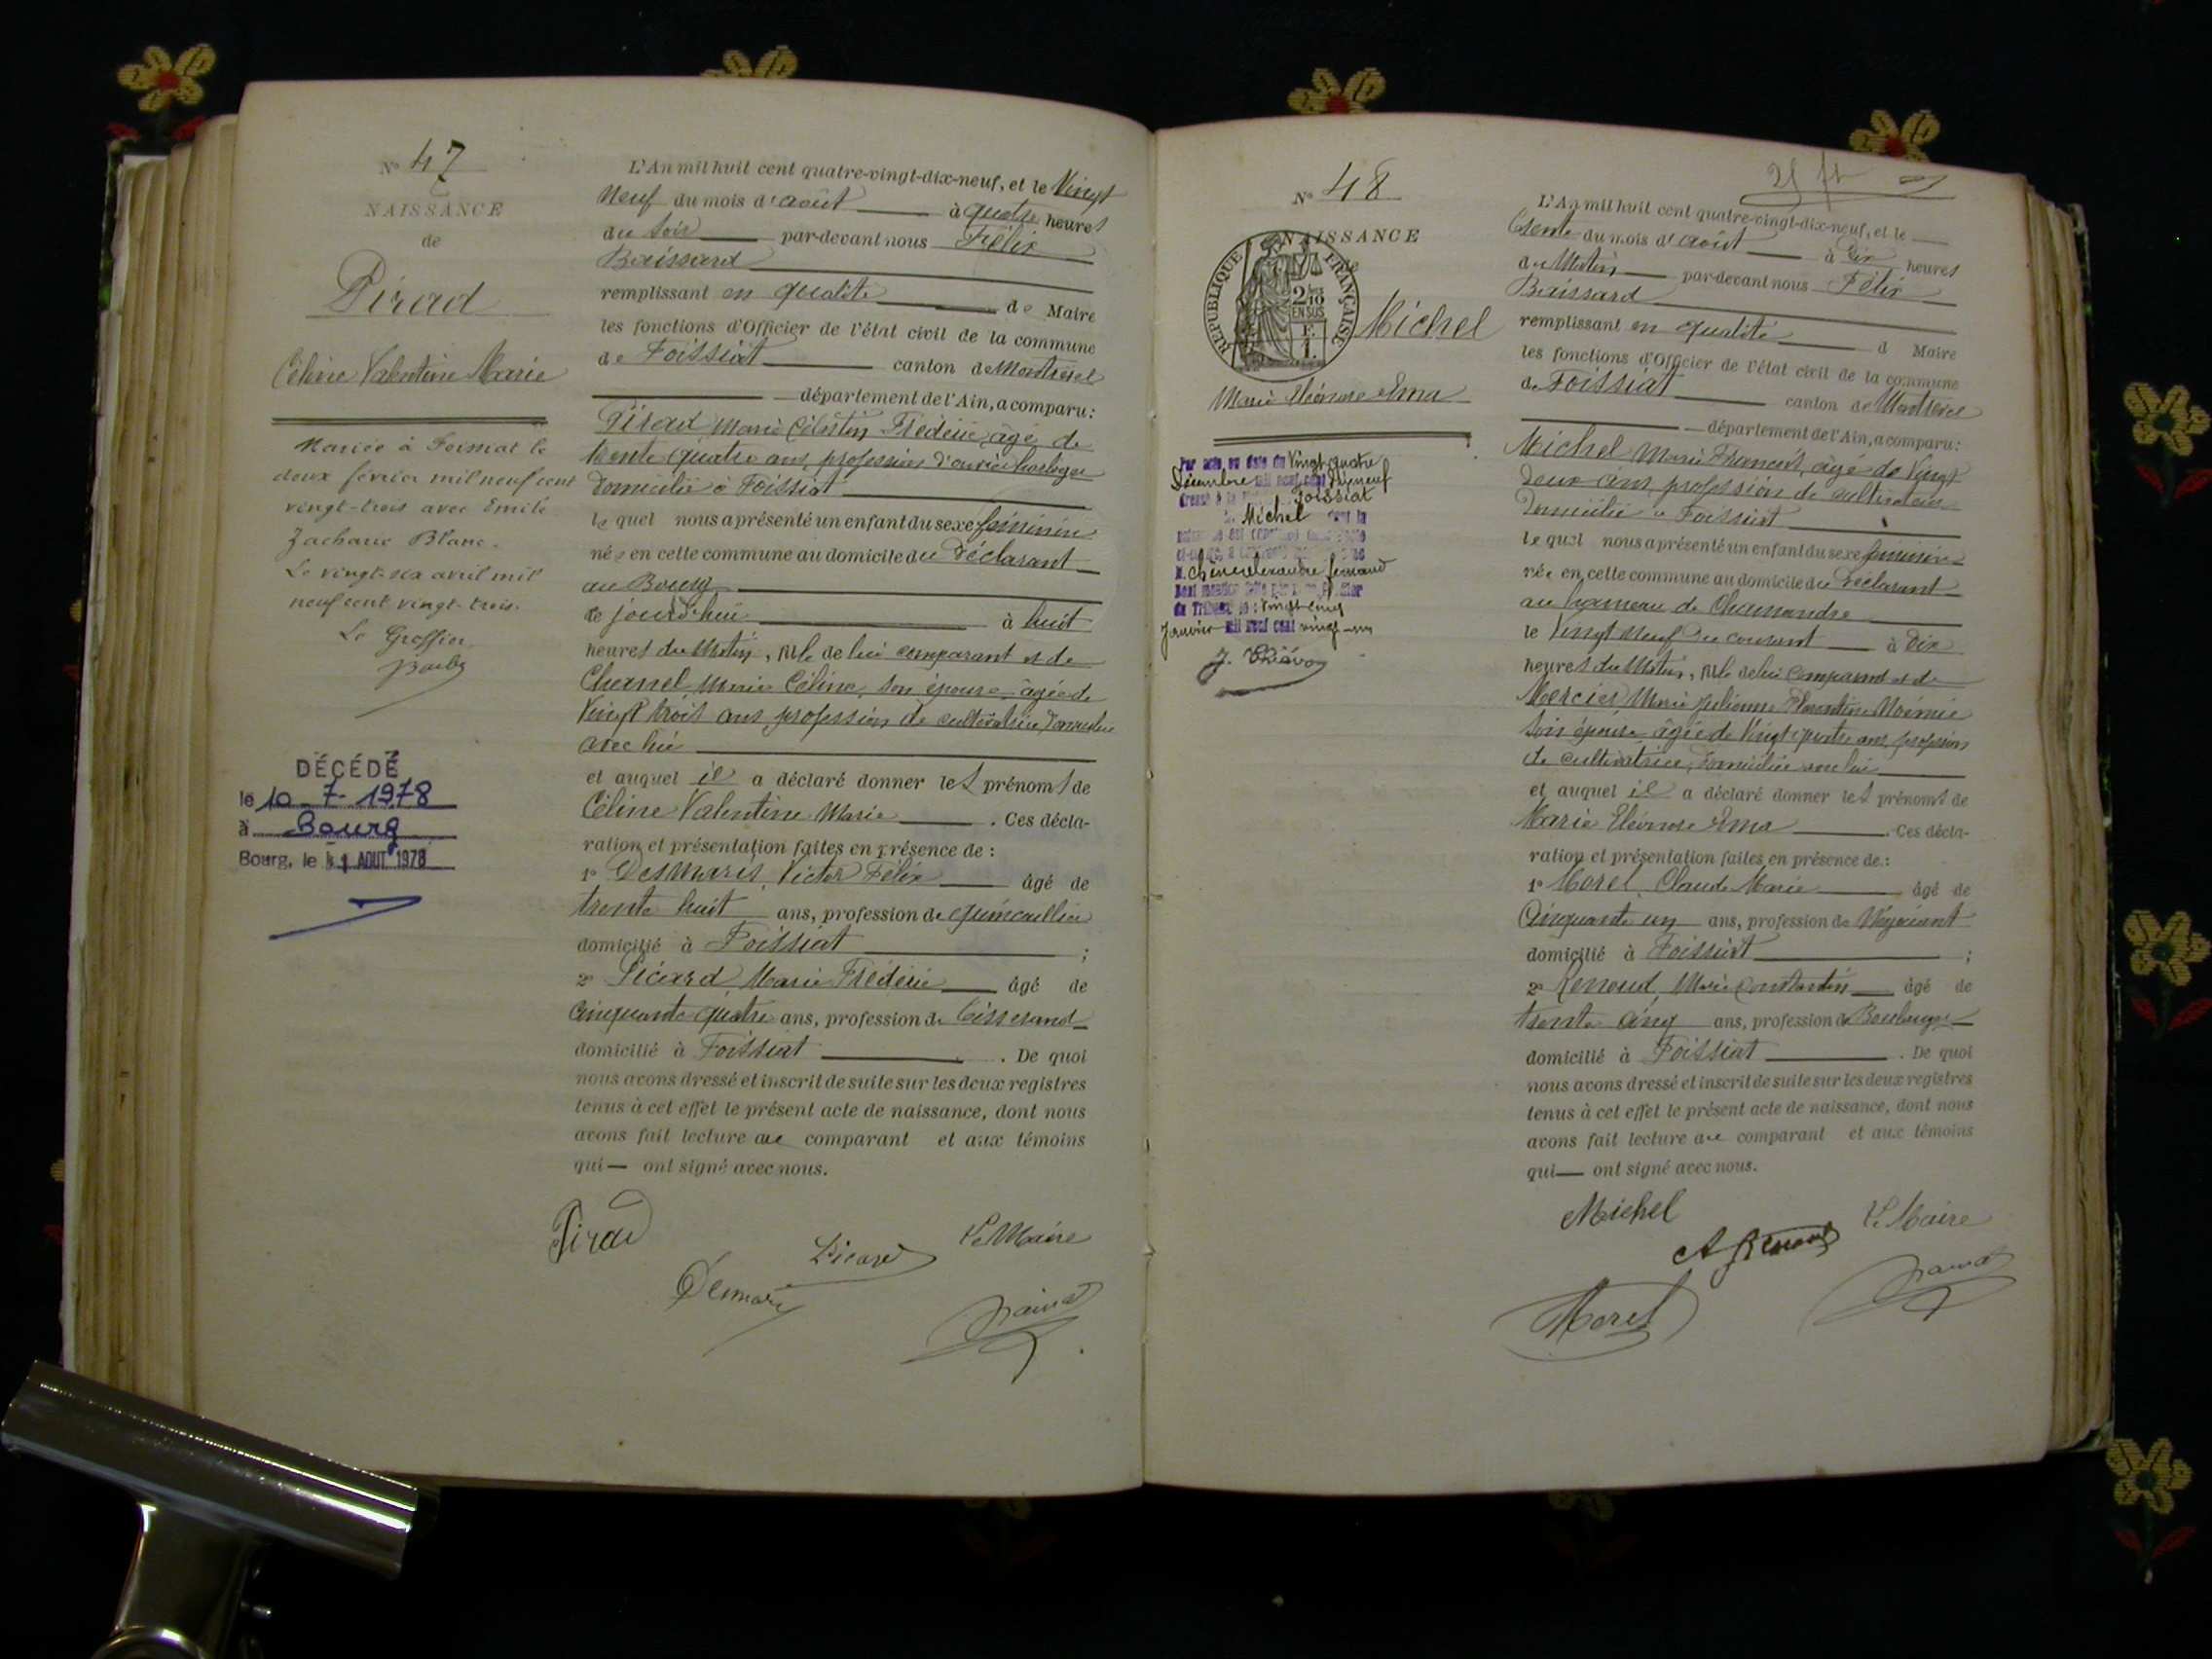 N° 47
NAISSANCE
de
Pirad
Céline Valentine Marie
Mariée à Foissiat le
deux février mil neuf cent
vingt-trois avec Emile
Zacharie Blanc.
Le vingt-six avril mil
neuf cent vingt-trois.
Le Greffier
DÉCÉDÉ
le 10-7-1978
à Bourg
Bourg, le 11 AOUT 1978
L'An mil huit cent quatre-vingt-dix-neuf, et le Vingt
Neuf du mois d'août à quatre heures
du Soir par-devant nous Félix
Baissard
remplissant en qualité de Maire
les fonctions d'Officier de l'état civil de la commune
de Foissiat canton de Montrevel
département de l'Ain, a comparu:
Pirad Marie Célestin Frédéric, âgé de
trente quatre ans, profession d'ouvrier horloger
domicilié à Foissiat
le quel nous a présenté un enfant du sexe féminin
née en cette commune au domicile du déclarant
au Bourg
ce jourd'hui à huit
heures du Matin, fille de lui comparant et de
Chanel Marie Céline, son épouse âgée de
Vingt trois ans, profession de cultivatrice, domiciliée
avec lui
et auquel il a déclaré donner les prénoms de
Céline Valentine Marie . Ces décla-
ration et présentation faites en présence de :
1° Desmaris, Victor Félix âgé de
trente huit ans, profession de quincaillier
domicilié à Foissiat ;
2° Picard, Marie Frédéric âgé de
Cinquante quatre ans, profession de tisserand
domicilié à Foissiat . De quoi
nous avons dressé et inscrit de suite sur les deux registres
tenus à cet effet le présent acte de naissance, dont nous
avons fait lecture au comparant et aux témoins
qui — ont signé avec nous.
Pirad
Picard
Le Maire
Demaris
N° 48
NAISSANCE
de
REPUBLIQUE FRANÇAISE
2/10 EN SUS
Michel
Marie Eléonore Ema
Par acte en date du Vingt quatre
Décembre mil neuf cent dix neuf
Foissiat
Michel
Alexandre fernand
du Tribunal le : Vingt cinq
Janvier mil neuf cent vingt-un
25 ft
L'An mil huit cent quatre-vingt-dix-neuf, et le
trente du mois d'août à dix heures
du Matin par-devant nous Félix
Baissard
remplissant en qualité d Maire
les fonctions d'Officier de l'état civil de la commune
de Foissiat canton de Montrevel
département de l'Ain, a comparu:
Michel Marie âgé de Vingt
deux ans, profession de cultivateur
domicilié à Foissiat
le quel nous a présenté un enfant du sexe féminin
née en cette commune au domicile du déclarant
au hameau de Chamandre
le Vingt Neuf du courant à dix
heures du Matin, fille de lui comparant et de
Mercier Marie Julienne Florentine Noémie
son épouse âgée de Vingt quatre ans, profession
de cultivatrice, domiciliée avec lui
et auquel il a déclaré donner les prénoms de
Marie Eléonore Ema . Ces décla-
ration et présentation faites en présence de :
1° Morel, Claude Marie âgé de
Cinquante un ans, profession de Négociant
domicilié à Foissiat ;
2° Renoud, Marie Constantin âgé de
trente cinq ans, profession de Boulanger
domicilié à Foissiat . De quoi
nous avons dressé et inscrit de suite sur les deux registres
tenus à cet effet le présent acte de naissance, dont nous
avons fait lecture au comparant et aux témoins
qui — ont signé avec nous.
Michel
Le Maire
A Renoud
Morel